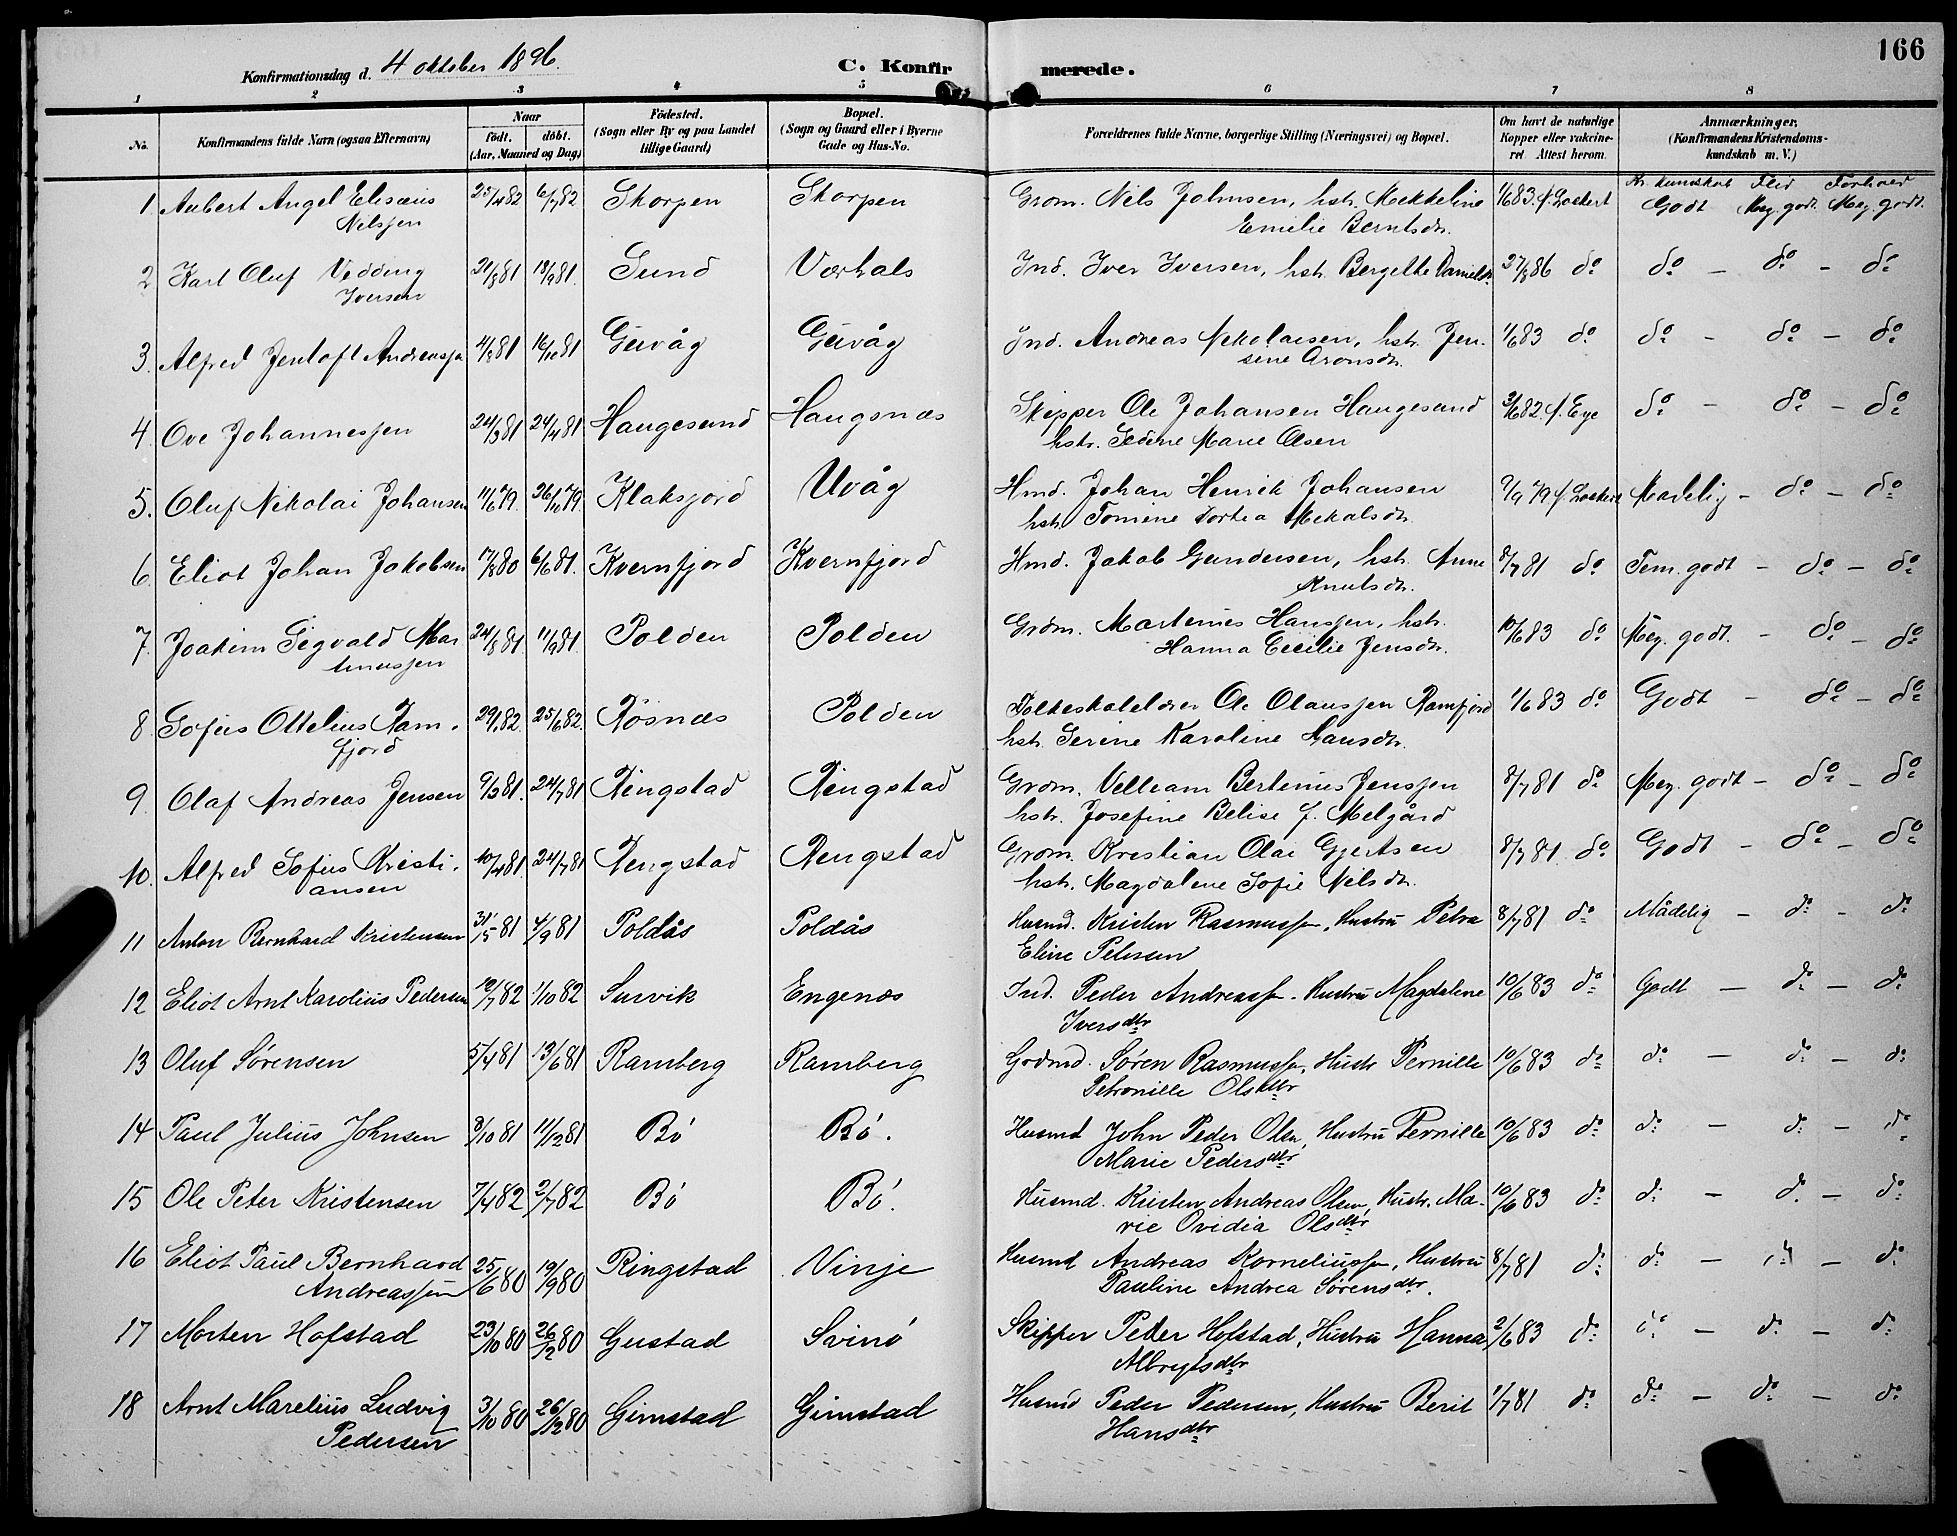 166
Konfirmationsdag d. 4 oktober 1896.
C. Konfirmerede.
1 2 3 4 5 6 7 8
No.
Konfirmandens fulde Navn (ogsaa Efternavn)
Naar
født. døbt.
(Aar, Maaned og Dag)
Födested.
(Sogn eller By og paa Landet
tillige Gaard)
Bopæl.
(Sogn og Gaard eller i Byerne
Gade og Hus-No.
Forældrenes fulde Navne, borgerlige Stilling (Næringsvei) og Bopæl.
Om havt de naturlige
Kopper eller vakcine-
ret Attest herom.
Anmærkninger.
(Konfirmandens Kristendoms-
kundskab m. V.)
Kr. kundskab Flid Forhold
1 Aubert Angel Elisæus 25/4 82 6/7 82 Skorpen Skorpen Grdm. Nils Johnsen, hstr. Mekkeline 1/6 83 f. Lockert Godt Meg. godt. Meg. godt.
Nilssen Emilie Berntsdr.
2 Karl Oluf Vedding 21/8 81 18/9 81 Sund Vørhals Ind. Iver Iversen, hstr. Bergethe Danielsdr. 27/8 86 do do - do - do
Iversen
3. Alfred Jentoft Andreassen 4/9 81 16/10 81 Guvåg Guvåg Ind. Andreas Nikolaisen, hstr. Jen- 1/6 83 do do - do - do
sine Aronsdr.
4. Ove Johannessen 24/3 81 24/4 81 Haugesund Haugsnæs Skipper Ole Johansen Haugesund 3/6 82 f. Eye do - do - do
hstr. Sedine Marie Olsen
5. Oluf Nikolai Johansen 11/6 79 26/10 79 Klaksjord Uvåg Hmd. Johan Henrik Johansen 9/9 79 f. Lockert Maadelig - do - do
hstr. Tomine Dortea Mekalsdr.
6. Eliot Johan Jakobsen 17/8 80 6/6 81 Kvernfjord Kvernfjord Hmd. Jakob Gundersen, hstr. Anne 8/7 81 do Tem. godt - do - do
Knutsdr.
7. Joakim Sigvald Mar 24/8 81 11/9 81 Polden Polden Grdm. Martenius Hanssen, hstr. 10/6 83 do Meg. godt. - do - do
tinussen Hanna Cecilie Jensdr.
8. Sofus Ottelius Ram- 29/1 82 25/6 82 Røsnæs Polden Folkeskolelærer Ole Olaussen Ramfjord 1/6 83 do Godt - do - do
fjord hstr. Serine Karoline Hansdr.
9. Olaf Andreas Jensen 9/3 81. 24/7 81 Ringstad Ringstad Grdm. Velleam Bertinus Jenssen 8/7 81 do Meg. godt - do - do
hstr. Josefine Belise f. Melgård
10. Alfred Sofus Kristi- 10/4 81. 24/7 81 Ringstad Ringstad Grdm. Kristian Olai Gjertsen 8/7 81. do Godt - do - do
ansen hstr. Magdalene Sofie Nilsdr.
11 Anton Bernhard Kristensen 31/5 81 4/9 81 Poldås Poldås Husmd. Kristen Rasmussen, Hustru Petra 8/7 81 do Mådelig - do - do
Eline Petersen
12 Eliot Arnt Karolius Pedersen 19/7 82 1/10 82 Survik Engenæs Ind. Peder Andreassen. Hustru Magdalene 10/6 83 do Godt - do - do
Iversdtr
13 Oluf Sørensen 5/4 81 13/6 81 Ramberg Ramberg Grdmd. Søren Rasmussen, Hustr Pernille 10/6 83 do do - do - do
Petronille Olsdtr
14 Paul Julius Johnsen 8/10 81 11/12 81 Bø Bø. Husmd John Peder Olsen, Hustru Pernille 10/6 83 do do - do - do
Marie Pedersdtr
15 Ole Peter Kristensen 7/4 82 2/7 82 Bø Bø. Husmd. Kristen Andreas Olsen, Hustr. Ma- 10/6 83 do do - do - do
rie Ovidia Olsdtr
16 Eliot Paul Bernhard 25/6 80 19/9 80 Ringstad Vinje Husmd Andreas Korneliussen, Hustru 8/7 81 do do - do - do
Andreassen Pauline Andrea Sørensdtr.
17 Morten Hofstad 23/10 80 26/12 80 Gustad Svinø Skipper Peder Hofstad, Hustru Hanna 2/6 83 do do - do - do
Albrigtsdtr
18 Arnt Marelius Ludvig 3/10 80 26/12 80 Gimstad Gimstad Husmd Peder Pedersen, Hustru Berit 1/7 81 do do - do - do
Pedersen Hansdtr